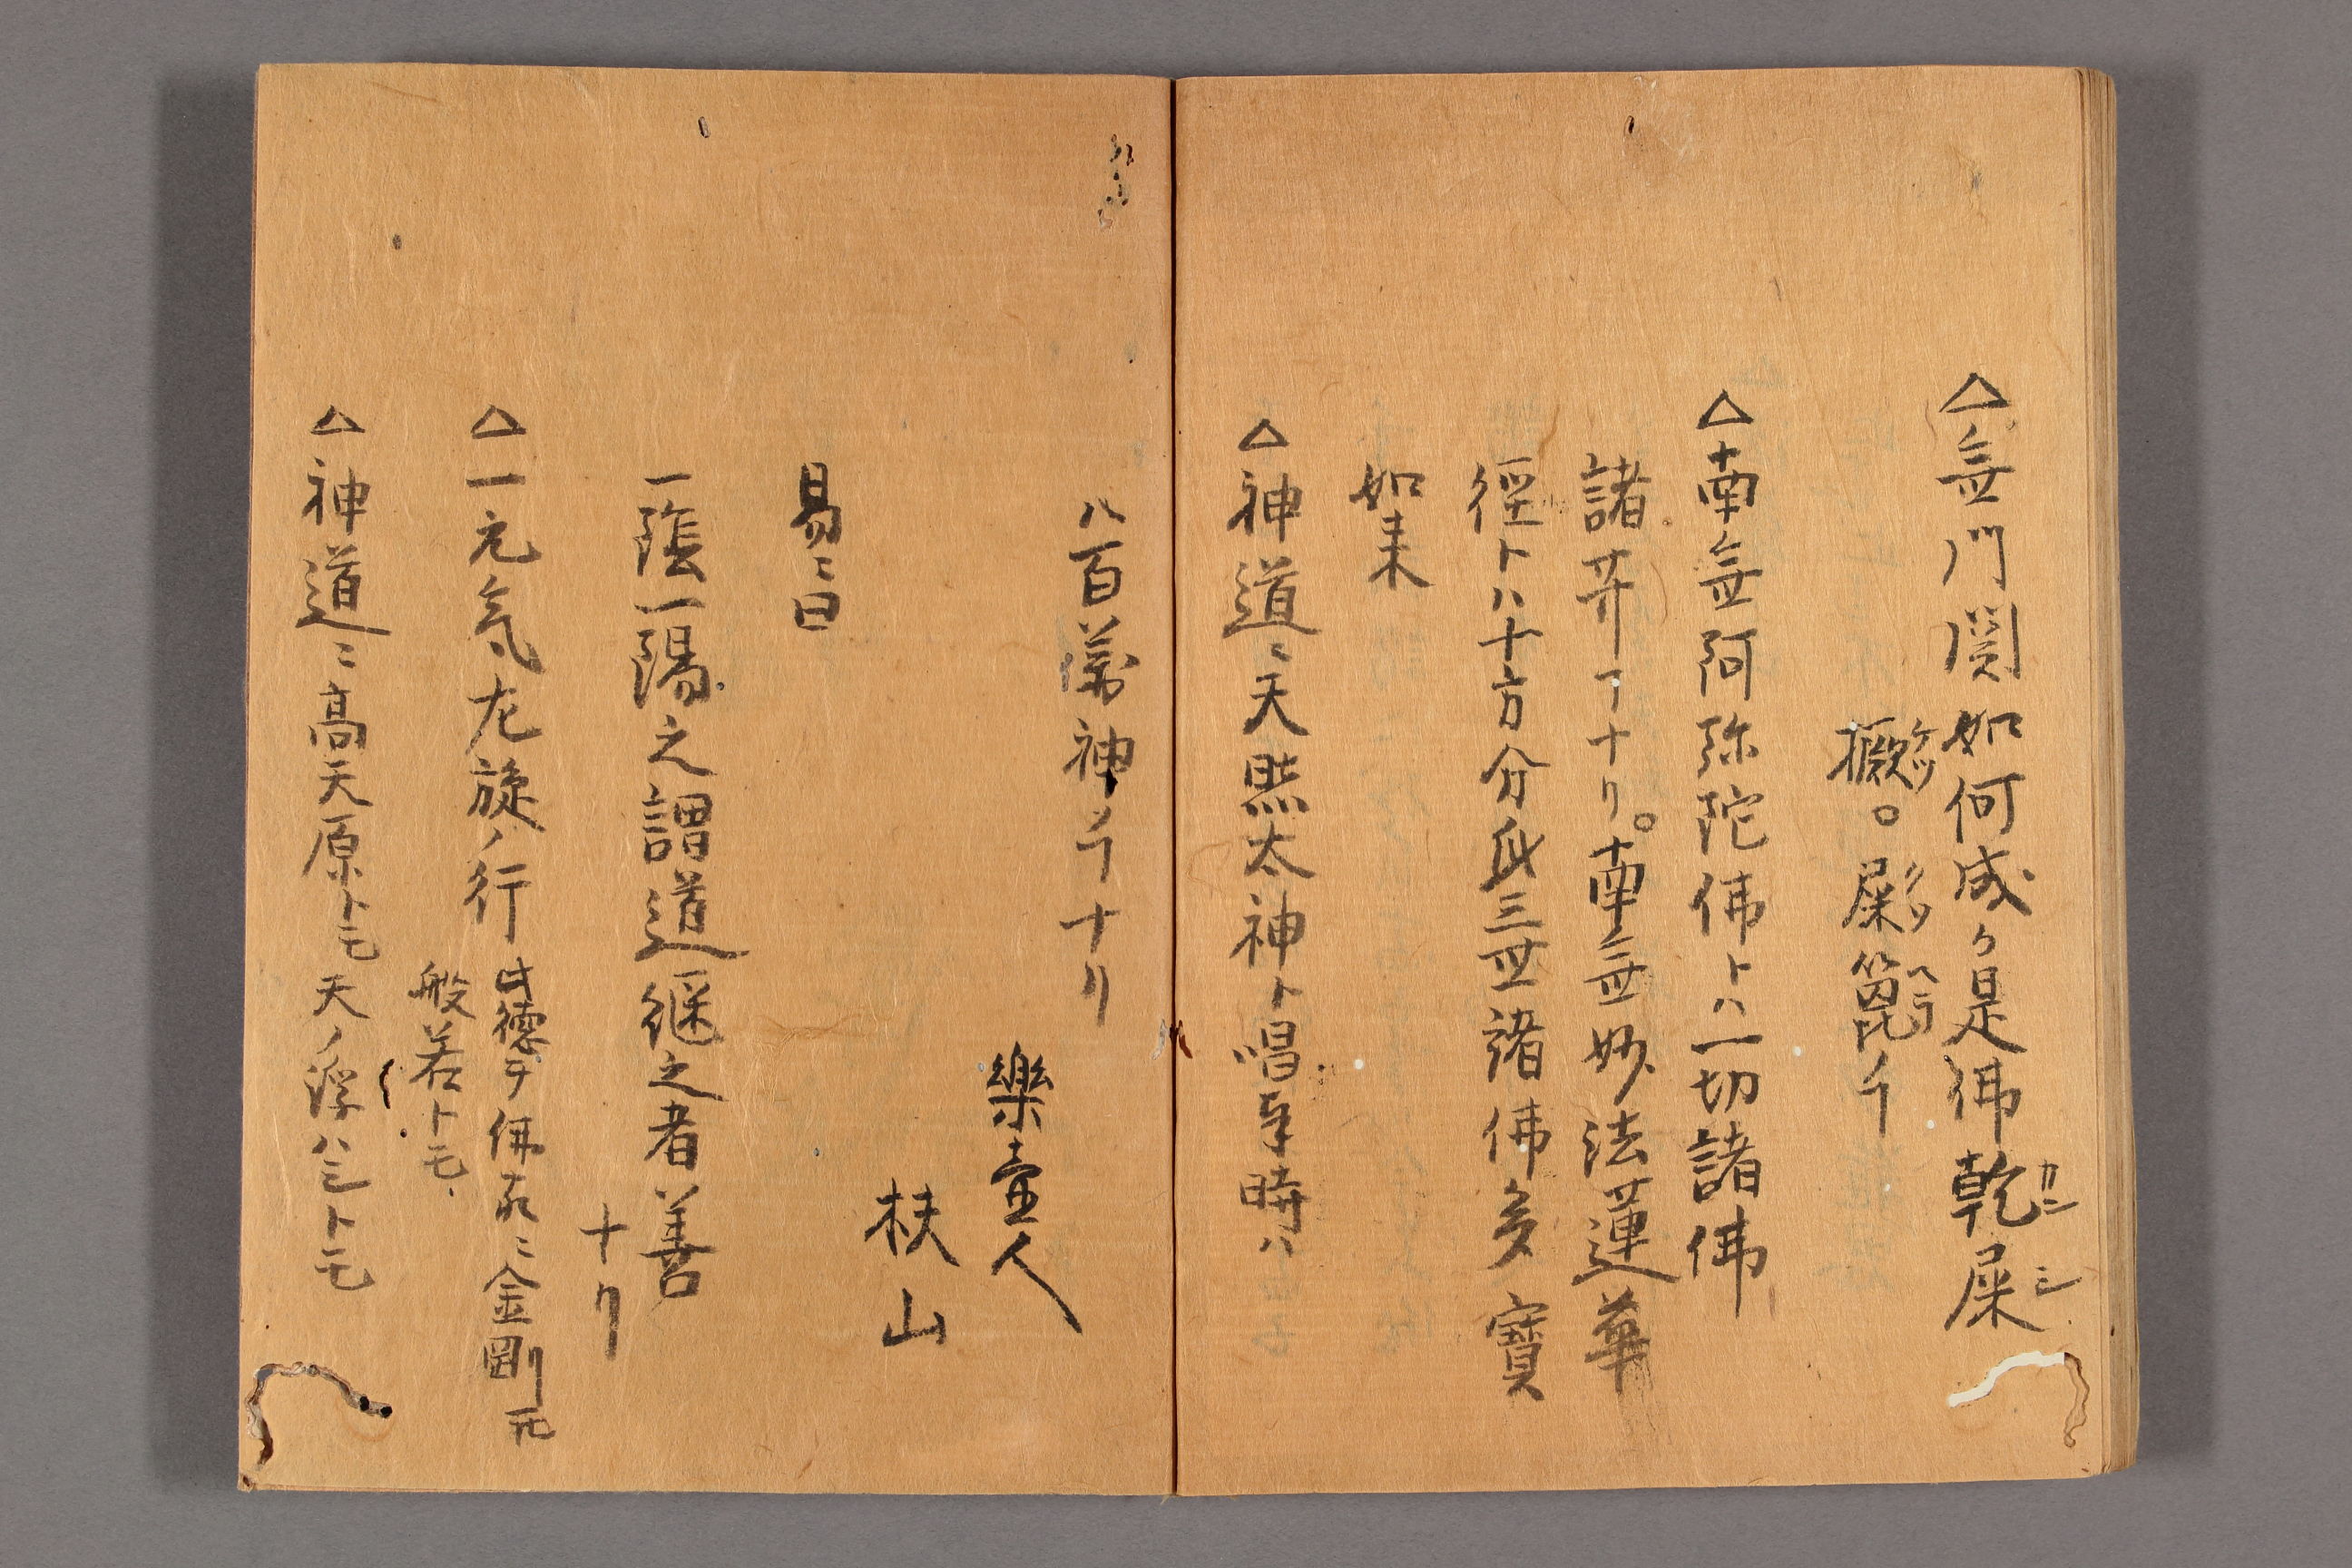 △無門関如何成カ是佛乾屎
カン シ
橛。屎箆ヿ
ケツ クソ ヘラ
△南無阿弥陀佛トハ一切諸佛
諸菩薩ナリ。南無妙法蓮華
経トハ十方分身三世諸佛多寳
如来
△神道ニ天照太神ト唱奉時ハ
八百萬神ノヿナリ
樂壷人
扶山
易ニ曰
一陰一陽之謂道継之者善
ナリ
△一元気左旋ノ行此徳ヲ佛家ニ金剛
般若トモ
△神道ニ高天原トモ天ノ浮ハシトモ